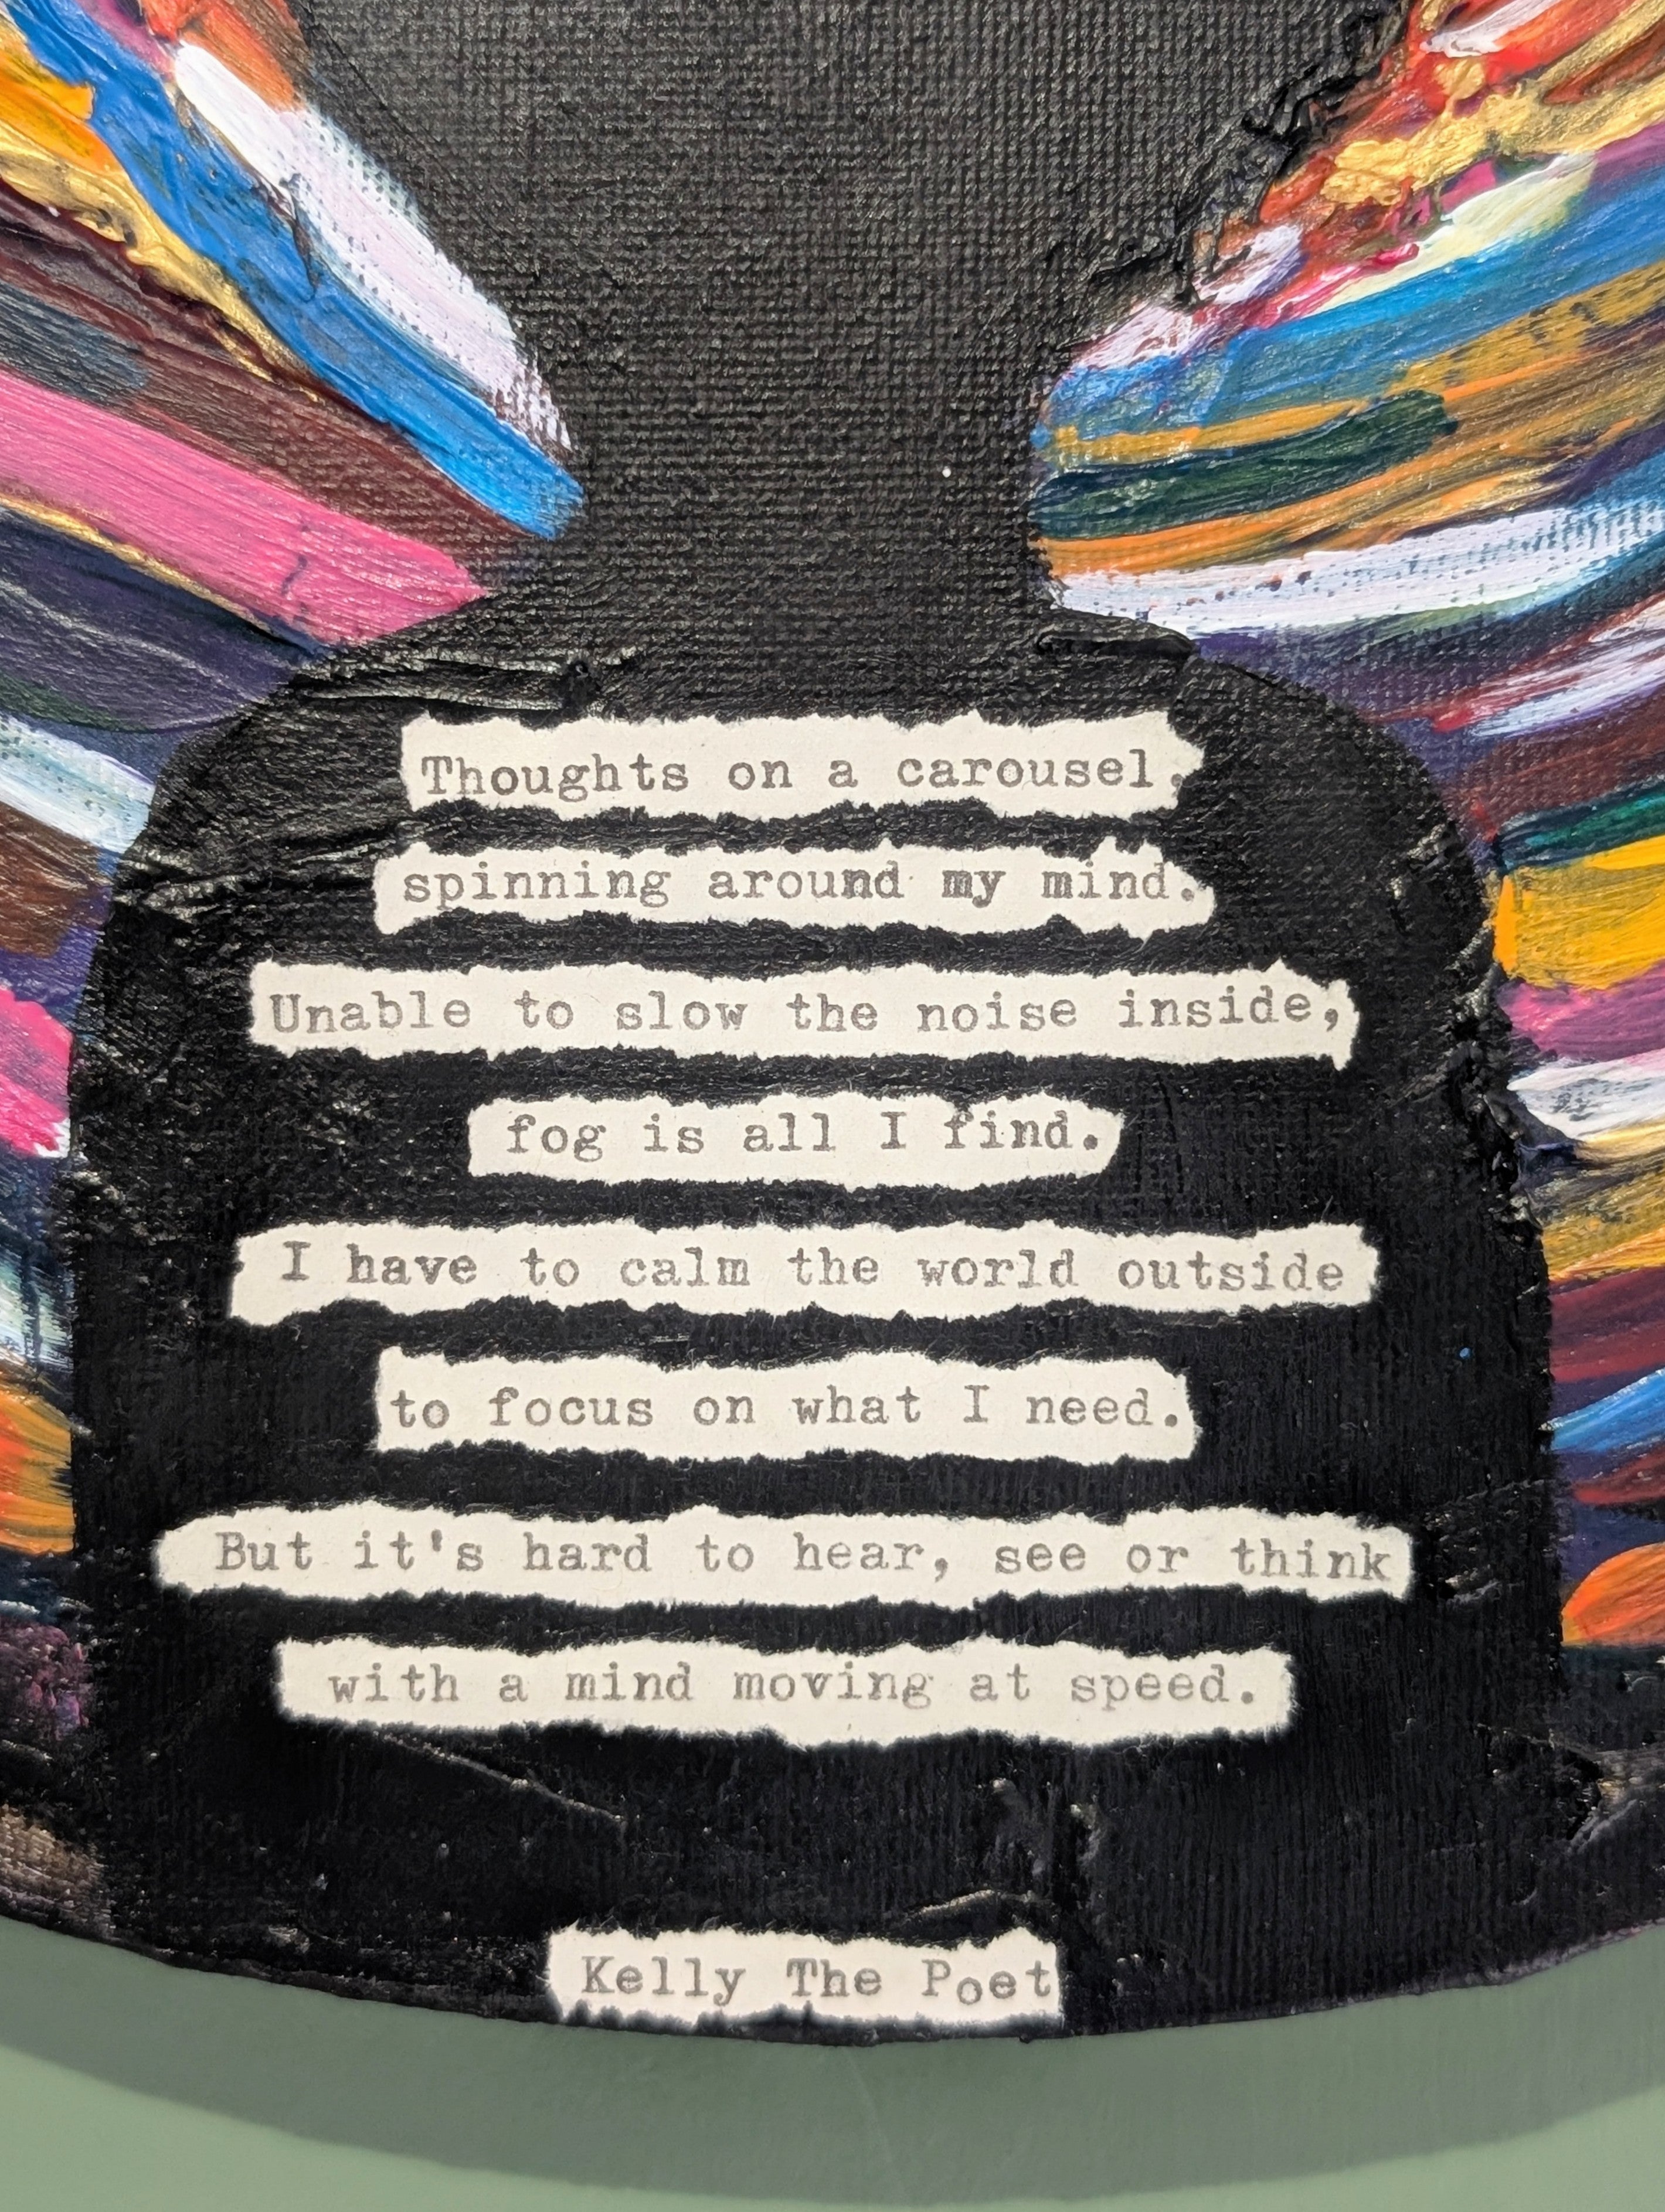 Thoughts on a carousel,
spinning around my mind.
Unable to slow the noise inside,
fog is all I find.
I have to calm the world outside
to focus on what I need.
But it's hard to hear, see or think
with a mind moving at speed.
Kelly The Poet